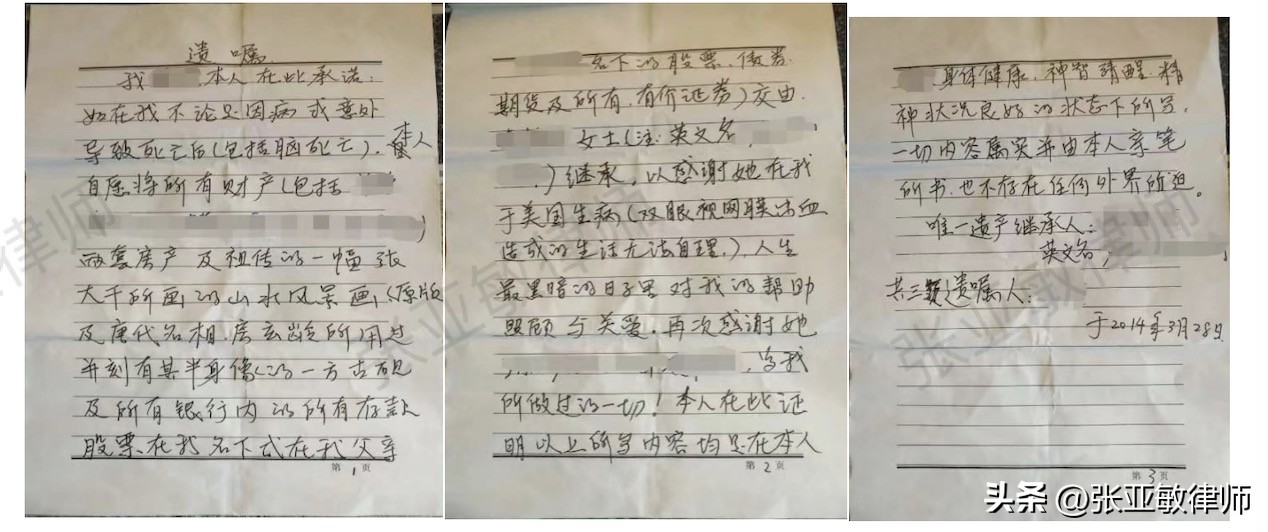 遗嘱
我 本人在此承诺:
如在我不论是因病或意外
导致死亡后(包括脑死亡),本人
自愿将所有财产(包括
)
两套房产及祖传的一幅张
大千所画的山水风景画,(原版
及唐代名相,房玄龄所用过
并刻有其半身像的一方古砚
及所有银行内的所有存款
股票在我名下或在我父亲
第1页
名下的股票、债券
期货及所有,有价证券)交由
女士(注:英文名,
)继承,以感谢她在我
于美国生病(双眼视网膜出血
造成的生活无法自理),人生
最黑暗的日子里对我的帮助
照顾与关爱.再次感谢她
,为我
所做过的一切!本人在此证
明以上所写内容均是在本人
第2页
身体健康.神智清醒.精
神状况良好的状态下所写.
一切内容属实并由本人亲笔
所书.也不存在任何外界所迫。
唯一遗产继承人:
英文名,
共三页遗嘱人:
于2014年3月28日
第3页
张亚敏律师
头条 @张亚敏律师